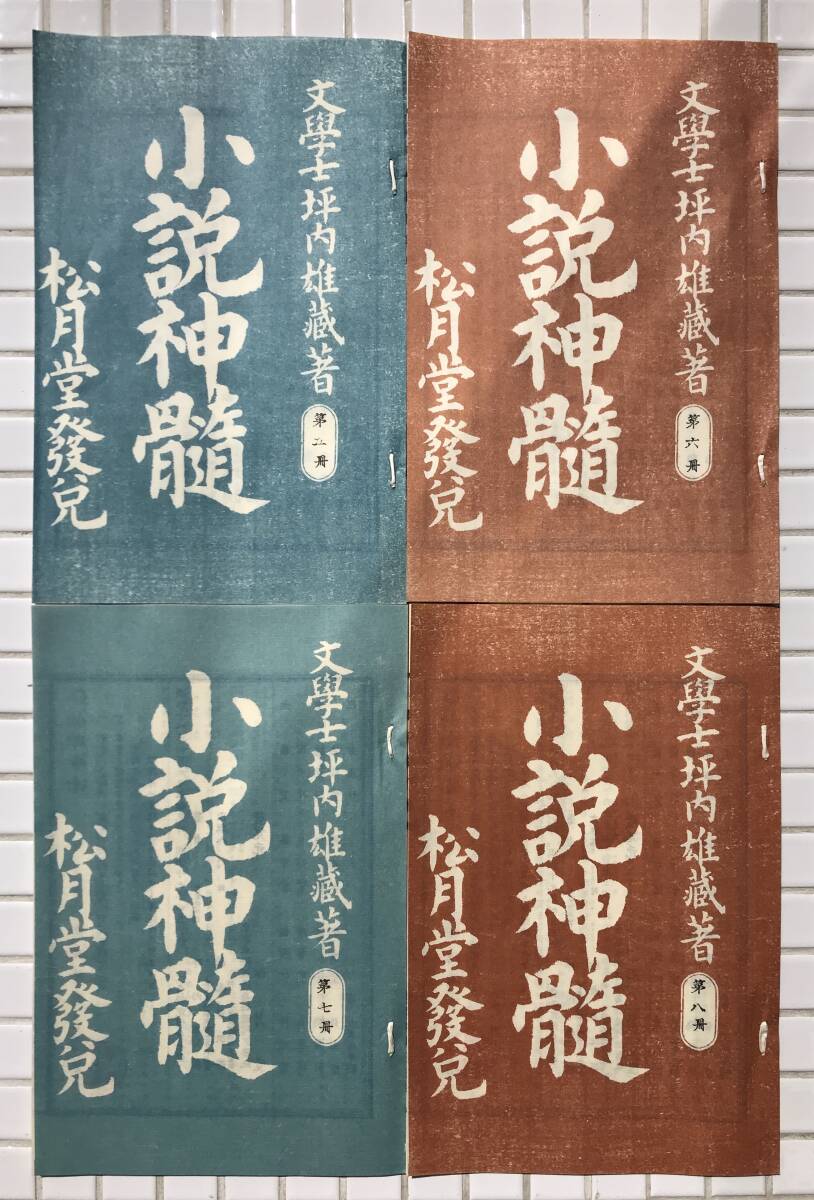 文學士坪内雄藏著
第五冊
小説神髓
松月堂發兌
文學士坪内雄藏著
第六冊
小説神髓
松月堂發兌
文學士坪内雄藏著
第七冊
小説神髓
松月堂發兌
文學士坪内雄藏著
第八冊
小説神髓
松月堂發兌